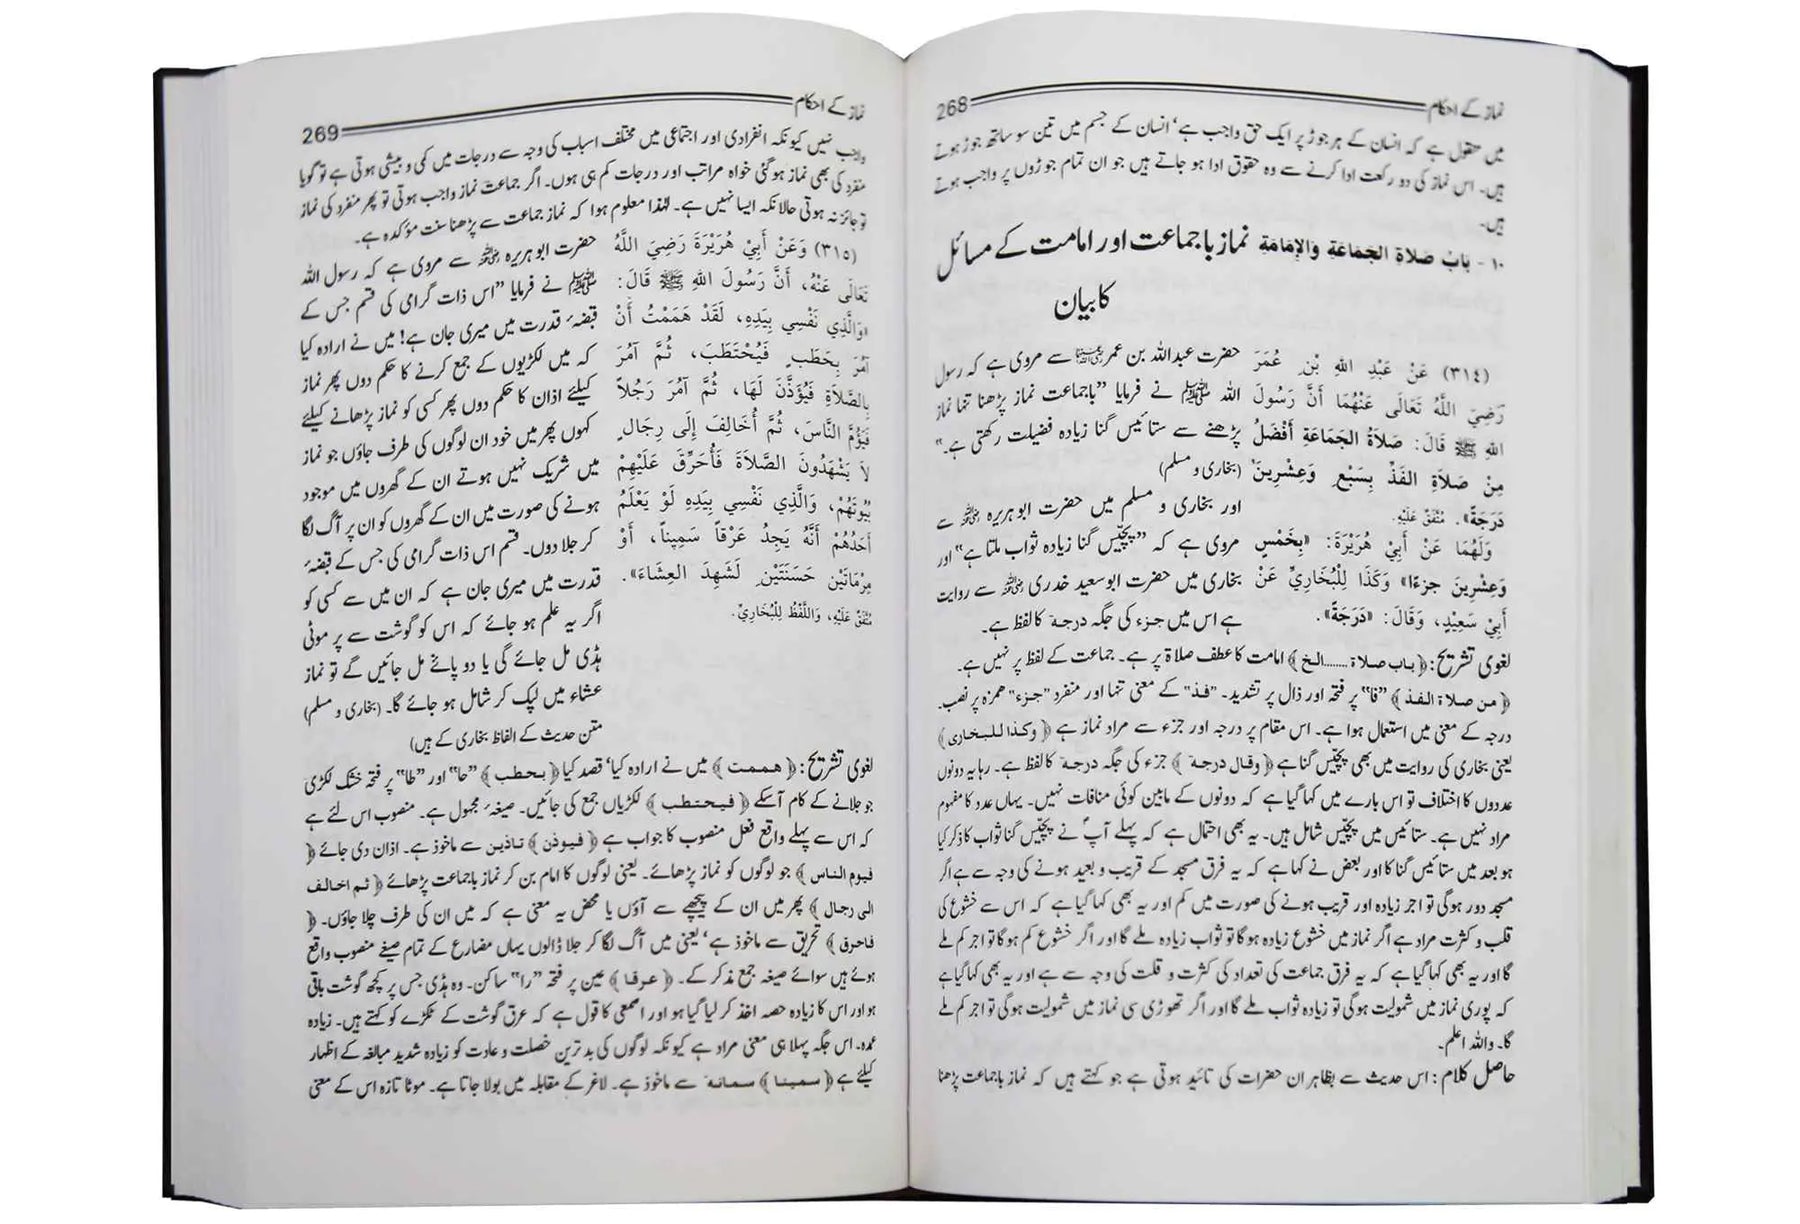 نماز کے احکام 268
میں منقول ہے کہ انسان کے ہر جوڑ پر ایک حق واجب ہے' انسان کے جسم میں تین سو ساٹھ جوڑ ہوتے
ہیں۔ اس نماز کی دو رکعت ادا کرنے سے وہ حقوق ادا ہو جاتے ہیں جو ان تمام جوڑوں پر واجب ہوتے
ہیں۔
١٠ - بَابُ صَلاَةِ الجَمَاعَةِ وَالإِمَامَةِ نماز باجماعت اور امامت کے مسائل
کا بیان
(٣١٤) عَنْ عَبْدِ اللهِ بْنِ عُمَرَ
رَضِيَ اللَّهُ تَعَالَى عَنْهُمَا أَنَّ رَسُولَ
اللهِ ﷺ قَالَ: صَلاَةُ الجَمَاعَةِ أَفْضَلُ
مِنْ صَلاَةِ الفَذِّ بِسَبْعٍ وَعِشْرِينَ
دَرَجَةً». مُتَّفَقٌ عَلَيْهِ.
وَلَهُمَا عَنْ أَبِيْ هُرَيْرَةَ: «بِخَمْسٍ
وَعِشْرِينَ جزءًا» وَكَذَا لِلْبُخَارِيِّ عَنْ
أَبِيْ سَعِيْدٍ، وَقَالَ: «دَرَجَةً».
حضرت عبداللہ بن عمر رضی اللہ عنہما سے مروی ہے کہ رسول
اللہ ﷺ نے فرمایا "باجماعت نماز پڑھنا تنہا نماز
پڑھنے سے ستائیس گنا زیادہ فضیلت رکھتی ہے۔"
(بخاری و مسلم)
اور بخاری و مسلم میں حضرت ابو ہریرہ رضی اللہ عنہ سے
مروی ہے کہ "پچیس گنا زیادہ ثواب ملتا ہے" اور
بخاری میں حضرت ابو سعید خدری رضی اللہ عنہ سے روایت
ہے اس میں جزء کی جگہ درجۃ کا لفظ ہے۔
لغوی تشریح: ﴿باب صلاۃ......الخ﴾ امامت کا عطف صلاۃ پر ہے۔ جماعت کے لفظ پر نہیں ہے۔
﴿من صلاۃ الفذ﴾ "فا" پر فتحہ اور ذال پر تشدید۔ "فذ" کے معنی تنہا اور منفرد "جزء" ہمزہ پر نصب۔
درجہ کے معنی میں استعمال ہوا ہے۔ اس مقام پر درجہ اور جزء سے مراد نماز ہے ﴿وکذا للبخاری﴾
یعنی بخاری کی روایت میں بھی پچیس گنا ہے ﴿وقال درجۃ﴾ جزء کی جگہ درجۃ کا لفظ ہے۔ رہا یہ دونوں
عددوں کا اختلاف تو اس بارے میں کہا گیا ہے کہ دونوں کے مابین کوئی منافات نہیں۔ یہاں عدد کا مفہوم
مراد نہیں ہے۔ ستائیس میں پچیس شامل ہیں۔ یہ بھی احتمال ہے کہ پہلے آپ ؐ نے پچیس گنا ثواب کا ذکر کیا
ہو بعد میں ستائیس گنا کا اور بعض نے کہا ہے کہ یہ فرق مسجد کے قریب و بعید ہونے کی وجہ سے ہے اگر
مسجد دور ہوگی تو اجر زیادہ اور قریب ہونے کی صورت میں کم اور یہ بھی کہا گیا ہے کہ اس سے خشوع کی
قلت و کثرت مراد ہے اگر نماز میں خشوع زیادہ ہوگا تو ثواب زیادہ ملے گا اور اگر خشوع کم ہوگا تو اجر کم ملے
گا اور یہ بھی کہا گیا ہے کہ یہ فرق جماعت کی تعداد کی کثرت و قلت کی وجہ سے ہے اور یہ بھی کہا گیا ہے
کہ پوری نماز میں شمولیت ہوگی تو زیادہ ثواب ملے گا اور اگر تھوڑی سی نماز میں شمولیت ہوگی تو اجر کم ملے
گا۔ واللہ اعلم۔
حاصل کلام: اس حدیث سے بظاہر ان حضرات کی تائید ہوتی ہے جو کہتے ہیں کہ نماز باجماعت پڑھنا
نماز کے احکام 269
واجب نہیں کیونکہ انفرادی اور اجتماعی میں مختلف اسباب کی وجہ سے درجات میں کمی و بیشی ہوتی ہے تو گویا
منفرد کی بھی نماز ہوگئی خواہ مراتب اور درجات کم ہی ہوں۔ اگر جماعت نماز واجب ہوتی تو پھر منفرد کی نماز
تو جائز نہ ہوتی حالانکہ ایسا نہیں ہے۔ لہٰذا معلوم ہوا کہ نماز جماعت سے پڑھنا سنت مؤکدہ ہے۔
(٣١٥) وَعَنْ أَبِيْ هُرَيْرَةَ رَضِيَ اللَّهُ
تَعَالَى عَنْهُ، أَنَّ رَسُولَ اللهِ ﷺ قَالَ:
«وَالَّذِي نَفْسِي بِيَدِهِ، لَقَدْ هَمَمْتُ أَنْ
آمُرَ بِحَطَبٍ فَيُحْتَطَبَ، ثُمَّ آمُرَ
بِالصَّلاَةِ فَيُؤَذَّنَ لَهَا، ثُمَّ آمُرَ رَجُلاً
فَيَؤُمَّ النَّاسَ، ثُمَّ أُخَالِفَ إِلَى رِجَالٍ
لاَ يَشْهَدُونَ الصَّلاَةَ فَأُحَرِّقَ عَلَيْهِمْ
بُيُوتَهُمْ، وَالَّذِي نَفْسِي بِيَدِهِ لَوْ يَعْلَمُ
أَحَدُهُمْ أَنَّهُ يَجِدُ عَرْقاً سَمِيناً، أَوْ
مِرْمَاتَيْنِ حَسَنَتَيْنِ لَشَهِدَ العِشَاءَ».
مُتَّفَقٌ عَلَيْهِ، وَاللَّفْظُ لِلْبُخَارِيِّ.
حضرت ابو ہریرہ رضی اللہ عنہ سے مروی ہے کہ رسول اللہ
ﷺ نے فرمایا "اس ذات گرامی کی قسم جس کے
قبضۂ قدرت میں میری جان ہے! میں نے ارادہ کیا
کہ میں لکڑیوں کے جمع کرنے کا حکم دوں پھر نماز
کیلئے اذان کا حکم دوں پھر کسی کو نماز پڑھانے کیلئے
کہوں پھر میں خود ان لوگوں کی طرف جاؤں جو نماز
میں شریک نہیں ہوتے ان کے گھروں میں موجود
ہونے کی صورت میں ان کے گھروں کو ان پر آگ لگا
کر جلا دوں۔ قسم اس ذات گرامی کی جس کے قبضۂ
قدرت میں میری جان ہے کہ ان میں سے کسی کو
اگر یہ علم ہو جائے کہ اس کو گوشت سے پر موٹی
ہڈی مل جائے گی یا دو پائے مل جائیں گے تو نماز
عشاء میں لپک کر شامل ہو جائے گا۔ (بخاری و مسلم)
متن حدیث کے الفاظ بخاری کے ہیں)
لغوی تشریح: ﴿ھممت﴾ میں نے ارادہ کیا' قصد کیا ﴿بحطب﴾ "حا" اور "طا" پر فتحہ خشک لکڑی
جو جلانے کے کام آسکے ﴿فیحتطب﴾ لکڑیاں جمع کی جائیں۔ صیغۂ مجہول ہے۔ منصوب اس لئے ہے
کہ اس سے پہلے واقع فعل منصوب کا جواب ہے ﴿فیوذن﴾ تاذین سے ماخوذ ہے۔ اذان دی جائے ﴿
فیوم الناس﴾ جو لوگوں کو نماز پڑھائے۔ یعنی لوگوں کا امام بن کر نماز باجماعت پڑھائے ﴿ثم اخالف
الی رجال﴾ پھر میں ان کے پیچھے سے آؤں یا محض یہ معنی ہے کہ میں ان کی طرف چلا جاؤں۔ ﴿
فاحرق﴾ تحریق سے ماخوذ ہے' یعنی میں آگ لگا کر جلا ڈالوں یہاں مضارع کے تمام صیغے منصوب واقع
ہوئے ہیں سوائے صیغہ جمع مذکر کے۔ ﴿عرقا﴾ عین پر فتحہ "را" ساکن۔ وہ ہڈی جس پر کچھ گوشت باقی
ہو اور اس کا زیادہ حصہ اخذ کر لیا گیا ہو اور اصمعی کا قول ہے کہ عرق گوشت کے ٹکڑے کو کہتے ہیں۔ زیادہ
عمدہ۔ اس جگہ پہلا ہی معنی مراد ہے کیونکہ لوگوں کی بدترین خصلت و عادت کو زیادہ شدید مبالغہ کے اظہار
کیلئے ہے ﴿سمینا﴾ سمانۃ سے ماخوذ ہے۔ لاغر کے مقابلہ میں بولا جاتا ہے۔ موٹا تازہ اس کے معنی